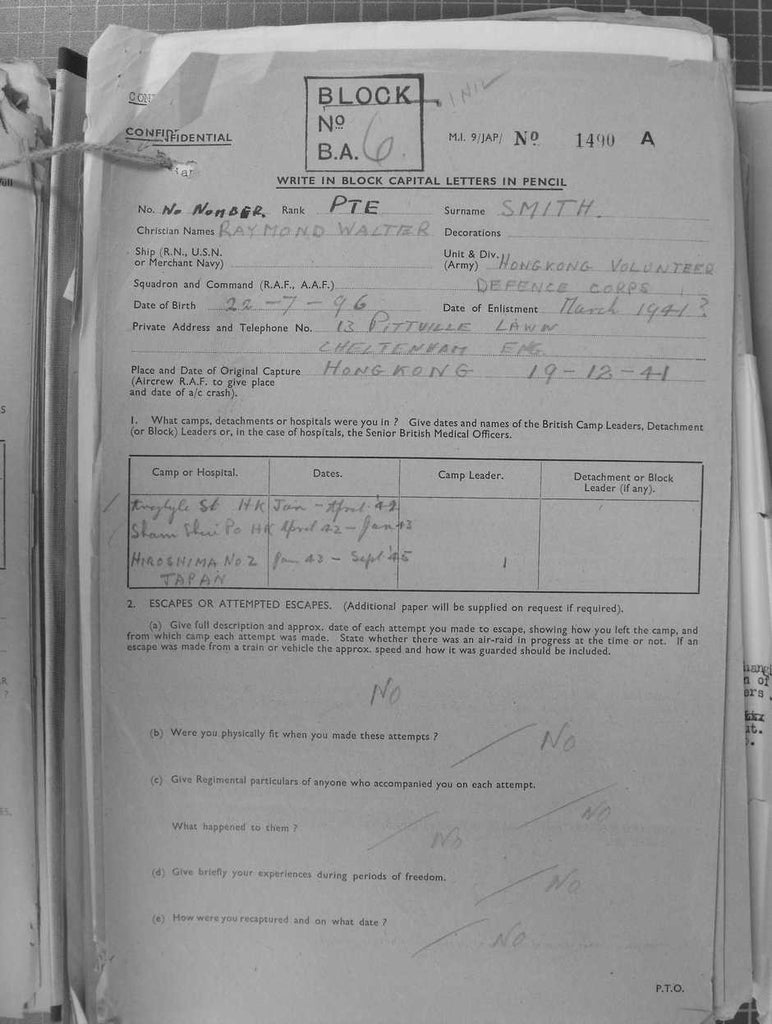 CONFIDENTIAL
BLOCK
No
B.A. 6
M.I. 9/JAP/ No 1490 A
WRITE IN BLOCK CAPITAL LETTERS IN PENCIL
No. No NUMBER. Rank PTE Surname SMITH.
Christian Names RAYMOND WALTER Decorations
Ship (R.N., U.S.N.
or Merchant Navy)
Unit & Div.
(Army) HONGKONG VOLUNTEER
Squadron and Command (R.A.F., A.A.F.) DEFENCE CORPS
Date of Birth 22-7-96 Date of Enlistment March 1941?
Private Address and Telephone No. 13 PITTVILLE LAWN
CHELTENHAM ENG.
Place and Date of Original Capture HONGKONG 19-12-41
(Aircrew R.A.F. to give place
and date of a/c crash).
1. What camps, detachments or hospitals were you in ? Give dates and names of the British Camp Leaders, Detachment
(or Block) Leaders or, in the case of hospitals, the Senior British Medical Officers.
Camp or Hospital. Dates. Camp Leader. Detachment or Block
Leader (if any).
St HK Jan - April 42
Sham Shui Po HK April 42 - Jan 43
HIROSHIMA No 2 Jan 43 - Sept 45
JAPAN
2. ESCAPES OR ATTEMPTED ESCAPES. (Additional paper will be supplied on request if required).
(a) Give full description and approx. date of each attempt you made to escape, showing how you left the camp, and
from which camp each attempt was made. State whether there was an air-raid in progress at the time or not. If an
escape was made from a train or vehicle the approx. speed and how it was guarded should be included.
No
(b) Were you physically fit when you made these attempts ? No
(c) Give Regimental particulars of anyone who accompanied you on each attempt.
No
What happened to them ? No
(d) Give briefly your experiences during periods of freedom.
No
(e) How were you recaptured and on what date ?
No
P.T.O.